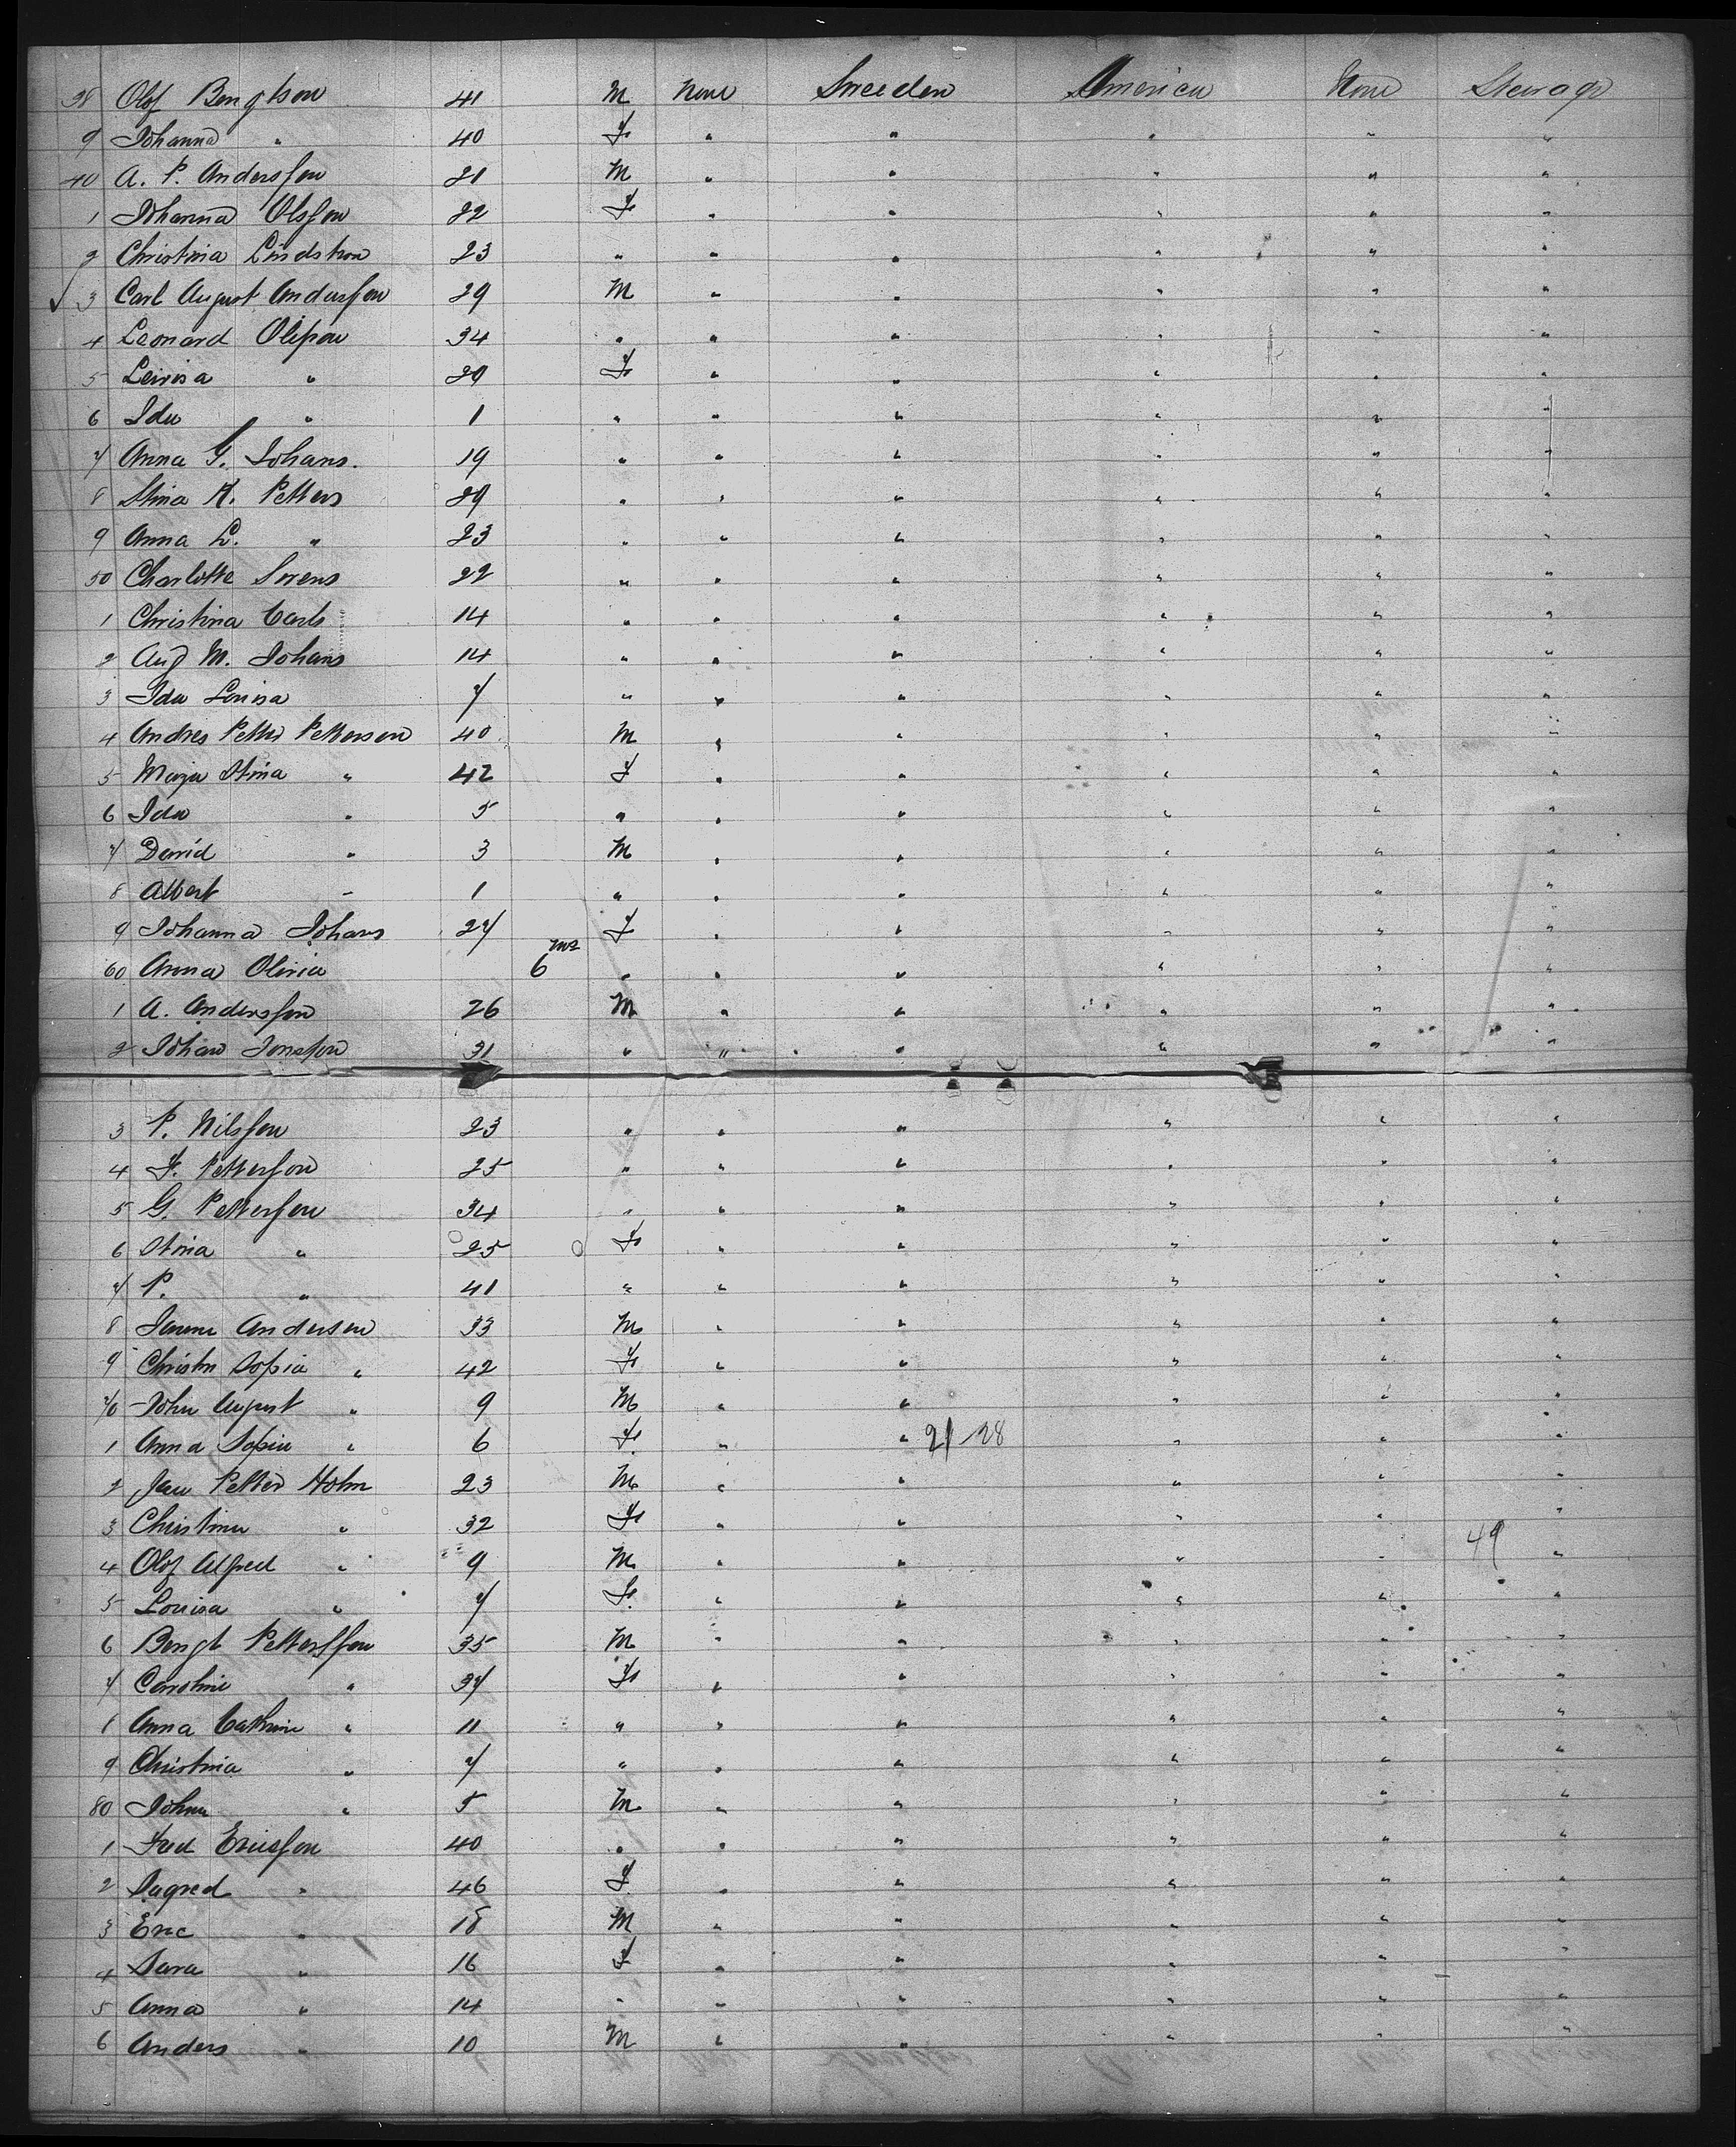 38 Olof Bengtson 41 M None Sweeden America None Steerage
9 Johanna " 40 F " " " " "
40 A. P. Andersson 21 M " " " " "
1 Johanna Olsson 22 F " " " " "
2 Christina Lindstron 23 " " " " " "
3 Carl August Andersson 29 M " " " " "
4 Leonard 34 " " " " " "
5 " 29 F " " " " "
6 Ida " 1 " " " " " "
7 Anna G. Johans. 19 " " " " " "
8 Stina K. Petters 29 " " " " " "
9 Anna L. " 23 " " " " " "
50 Charlotte Sorens 22 " " " " " "
1 Christina Carls 14 " " " " " "
2 Aug M. Johans 14 " " " " " "
3 Ida Louisa 7 " " " " " "
4 Andres Petter Petterson 40 M " " " " "
5 Maja Stina " 42 F " " " " "
6 Ida " 5 " " " " " "
7 David " 3 M " " " " "
8 Albert " 1 " " " " " "
9 Johanna Johans 27 F " " " " "
60 Anna Olivia 6 ms " " " " " "
1 A. Andersson 26 M " " " " "
2 Johan Jonsson 31 " " " " " "
3 P. Nilsson 23 " " " " " "
4 F. Petterson 25 " " " " " "
5 G. Petterson 34 " " " " " "
6 Stina " 25 F " " " " "
7 P. " 41 " " " " " "
8 Andersen 33 M " " " " "
9 Christn Sopia " 42 F " " " " "
70 John August " 9 M " " " " "
1 Anna Sopia " 6 F " " 21-28 " " "
2 Jan Petter Holm 23 M " " " " "
3 Christina " 32 F " " " " "
4 Olof Alfred " 9 M " " " " 49 "
5 Louisa " 7 F " " " " "
6 Bengt Pettersson 35 M " " " " "
7 Caroline " 37 F " " " " "
8 Anna Cathrine " 11 " " " " " "
9 Christina " 7 " " " " " "
80 Johan " 5 M " " " " "
1 Fred Ericsson 40 " " " " " "
2 " 46 F " " " " "
3 Eric " 18 M " " " " "
4 Sara " 16 F " " " " "
5 Anna " 14 " " " " " "
6 Anders " 10 M " " " " "